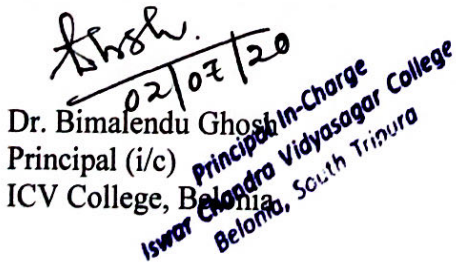 Ghosh.
02/07/20
Dr. Bimalendu Ghosh
Principal (i/c)
ICV College, Belonia
Principal In-Charge
Iswar Chandra Vidyasagar College
Belonia, South Tripura